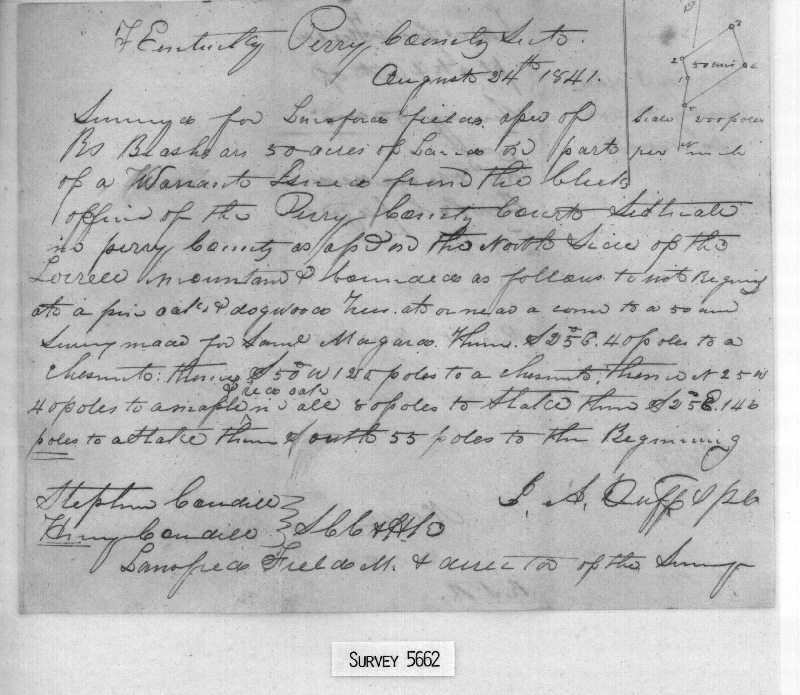 Kentucky Perry County Sct.
August 24th 1841.
Surveyed for Lunsford fields assee of
RS Brashears 50 acres of Land on part
of a Warrant Issued from the Clerk
office of the Perry County Court Situate
in perry County as afsd on the North Side of the
Lorrell mountain & bounded as follows to wit Begining
at a pin oak & dogwood trees at or near a corner to a 50 acre
Survey made for Saml Magard. Thence S 25 E. 40 poles to a
Chesnut: thence S 50 W 120 poles to a Chesnut, thence N 25 W
& red oak
40 poles to a maple poles to Stake thence S 25 E. 146
poles to a Stake thence South 55 poles to the Beginning
Stephen Caudill
Henry Caudill } SCC
A. Duff
Lansford Fields M. & director of the Survey
50 acres
1
2
3
4
Scale 200 poles
per inch
SURVEY 5662